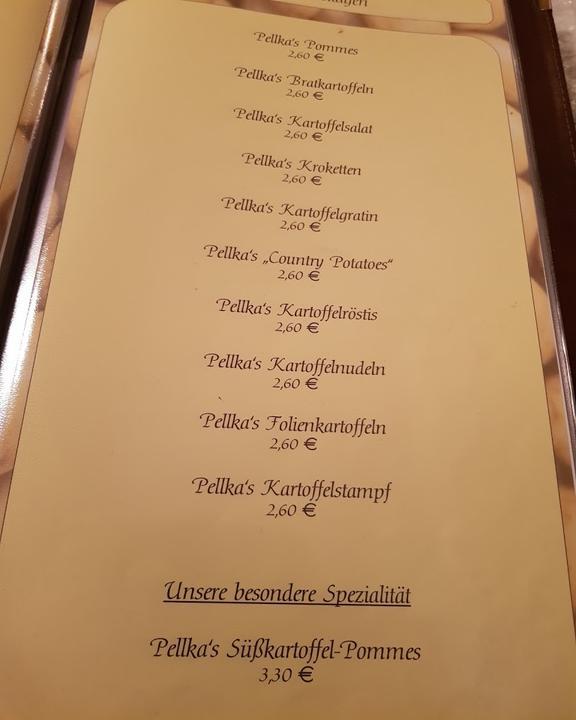 Pellka's Pommes
2,60 €
Pellka's Bratkartoffeln
2,60 €
Pellka's Kartoffelsalat
2,60 €
Pellka's Kroketten
2,60 €
Pellka's Kartoffelgratin
2,60 €
Pellka's „Country Potatoes“
2,60 €
Pellka's Kartoffelröstis
2,60 €
Pellka's Kartoffelnudeln
2,60 €
Pellka's Folienkartoffeln
2,60 €
Pellka's Kartoffelstampf
2,60 €
Unsere besondere Spezialität
Pellka's Süßkartoffel-Pommes
3,30 €